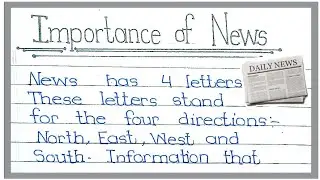 Importance of News
DAILY NEWS
News has 4 letters
These letters stand
for the four directions:-
North, East, West and
South. Information that